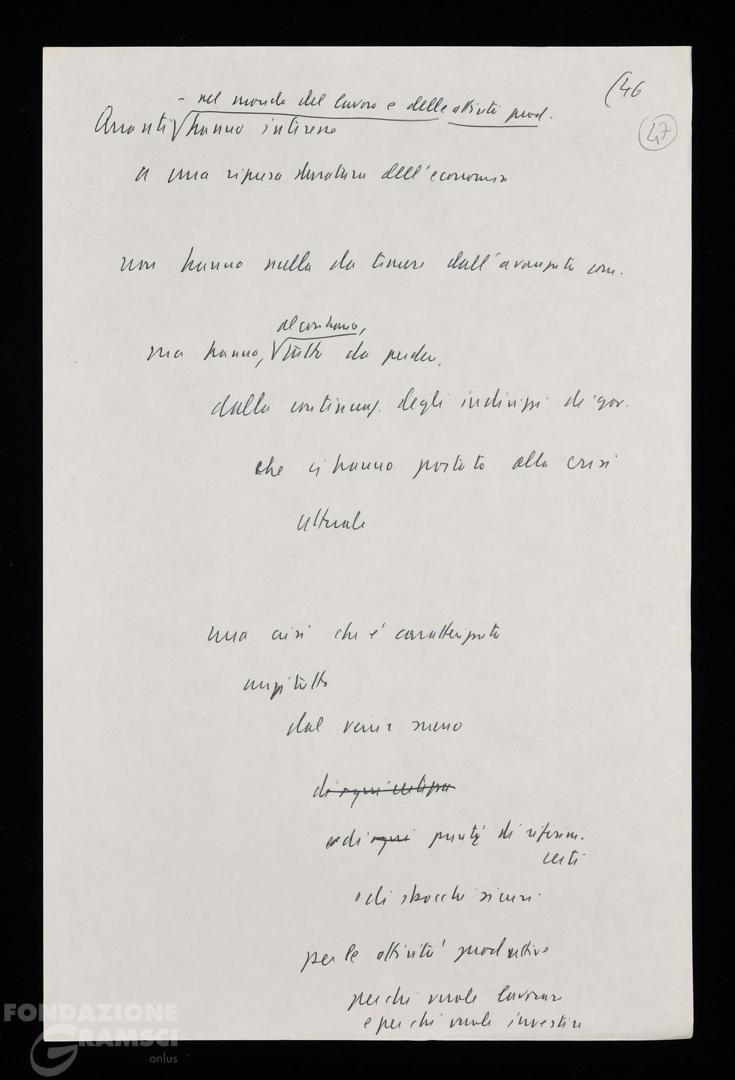 (46
47
- nel mondo del lavoro e delle attività prod.
Quanti hanno interesse
a una ripresa duratura dell'economia
non hanno nulla da temere dall'avanzata com.
al contrario,
ma hanno, tutto da perdere,
dalla continuaz. degli indirizzi di gov.
che ci hanno portato alla crisi
attuale
una crisi che è caratterizzata
anzitutto
dal venir meno
di ogni
e di ogni punti di riferim.
certi
e di sbocchi sicuri
per le attività produttive
per chi vuole lavorare
e per chi vuole investire
FONDAZIONE
GRAMSCI
onlus